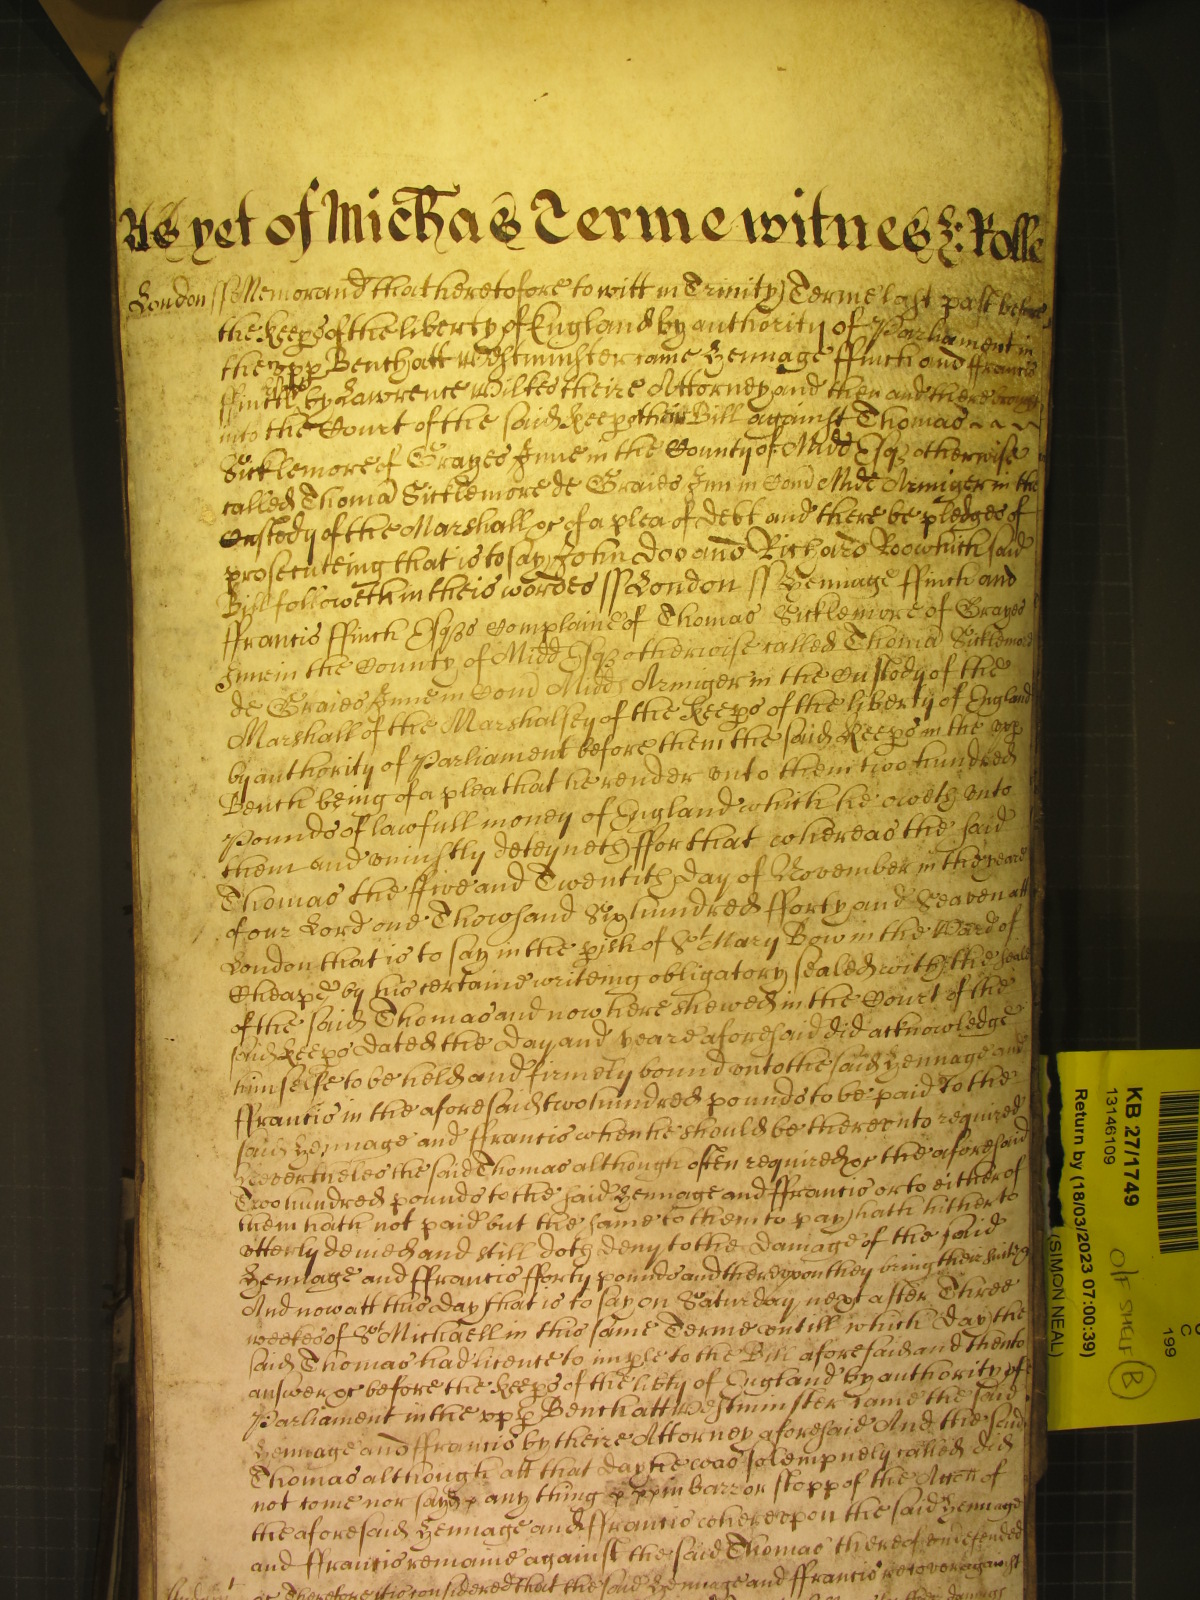 As yet of Michas Terme witnes H: Rolle
London ss Memorand that heretofore to witt in Trinity Terme last past before
the keeps of the liberty of England by authority of Parliament in
the upp Bench att Westminster came Hennage ffinch and ffrancis
ffinch Esqs by Lawrence Wilkes theire Attorney and then and there brought
into the Court of the said keeps their Bill against Thomas
Sicklemore of Grayes Inne in the County of Midd Esqz otherwise
called Thoma Sicklemore de Graies Inn in Com Midd Armiger in the
Custody of the Marshall &c of a plea of debt and there be pledges of
prosecuteing that is to say John Doo and Richard Roo which said
Bill followeth in theis wordes ss London ss Hennage ffinch and
ffrancis ffinch Esqzs Complaine of Thomas Sicklemore of Grayes
Inne in the County of Midd Esqz otherwise called Thoma Sicklemore
de Graies Inne in Com Midd Armiger in the Custody of the
Marshall of the Marshalsey of the keeps of the liberty of England
by authority of Parliament before them the said keeps in the upp
Bench being of a plea that he render unto them two hundred
Pounds of lawfull money of England which he oweth unto
them and uniustly deteyneth ffor that whereas the said
Thomas the ffive and Twentith day of November in the yeare
of our Lord one Thowsand Six hundred fforty and Seaven att
London that is to say in the pish of St Mary Bow in the Ward of
Cheape by his certaine writeing obligatory sealed with the seale
of the said Thomas and now here shewed in the Court of the
said keeps dated the day and yeare aforesaid did acknowledge
himselfe to be held and firmely bound unto the said Hennage and
ffrancis in the aforesaid two hundred pounds to be paid to the
said Hennage and ffrancis when he should be thereunto required
Neverthelesse the said Thomas although often required &c the aforesaid
Two hundred pounds to the said Hennage and ffrancis or to either of
them hath not paid but the same to them to pay hath hitherto
utterly denied and still doth deny to the damage of the said
Hennage and ffrancis fforty pounds and thereupon they bring their suite &c
And now att this day that is to say on Saturday next after Three
weekes of St Michaell in this same Terme untill which day the
said Thomas had licence to imple to the Bill aforesaid and then to
answer &c before the keeps of the libty of England by authority of
Parliament in the upp Bench att Westminster came the said
Hennage and ffrancis by theire Attorney aforesaid And the said
Thomas although att that day he was solempnely called did
not come nor sayd any thing in barr or stopp of the Accon of
the aforesaid Hennage and ffrancis whereupon the said Hennage
and ffrancis remaine against the said Thomas thereof undefended
&c Therefore itis considered that the said Hennage and ffrancis recover against
KB 27/1749
13146109
Return by (18/03/2023 07:00:39)
(SIMON NEAL)
O/F SHELF B
C
199